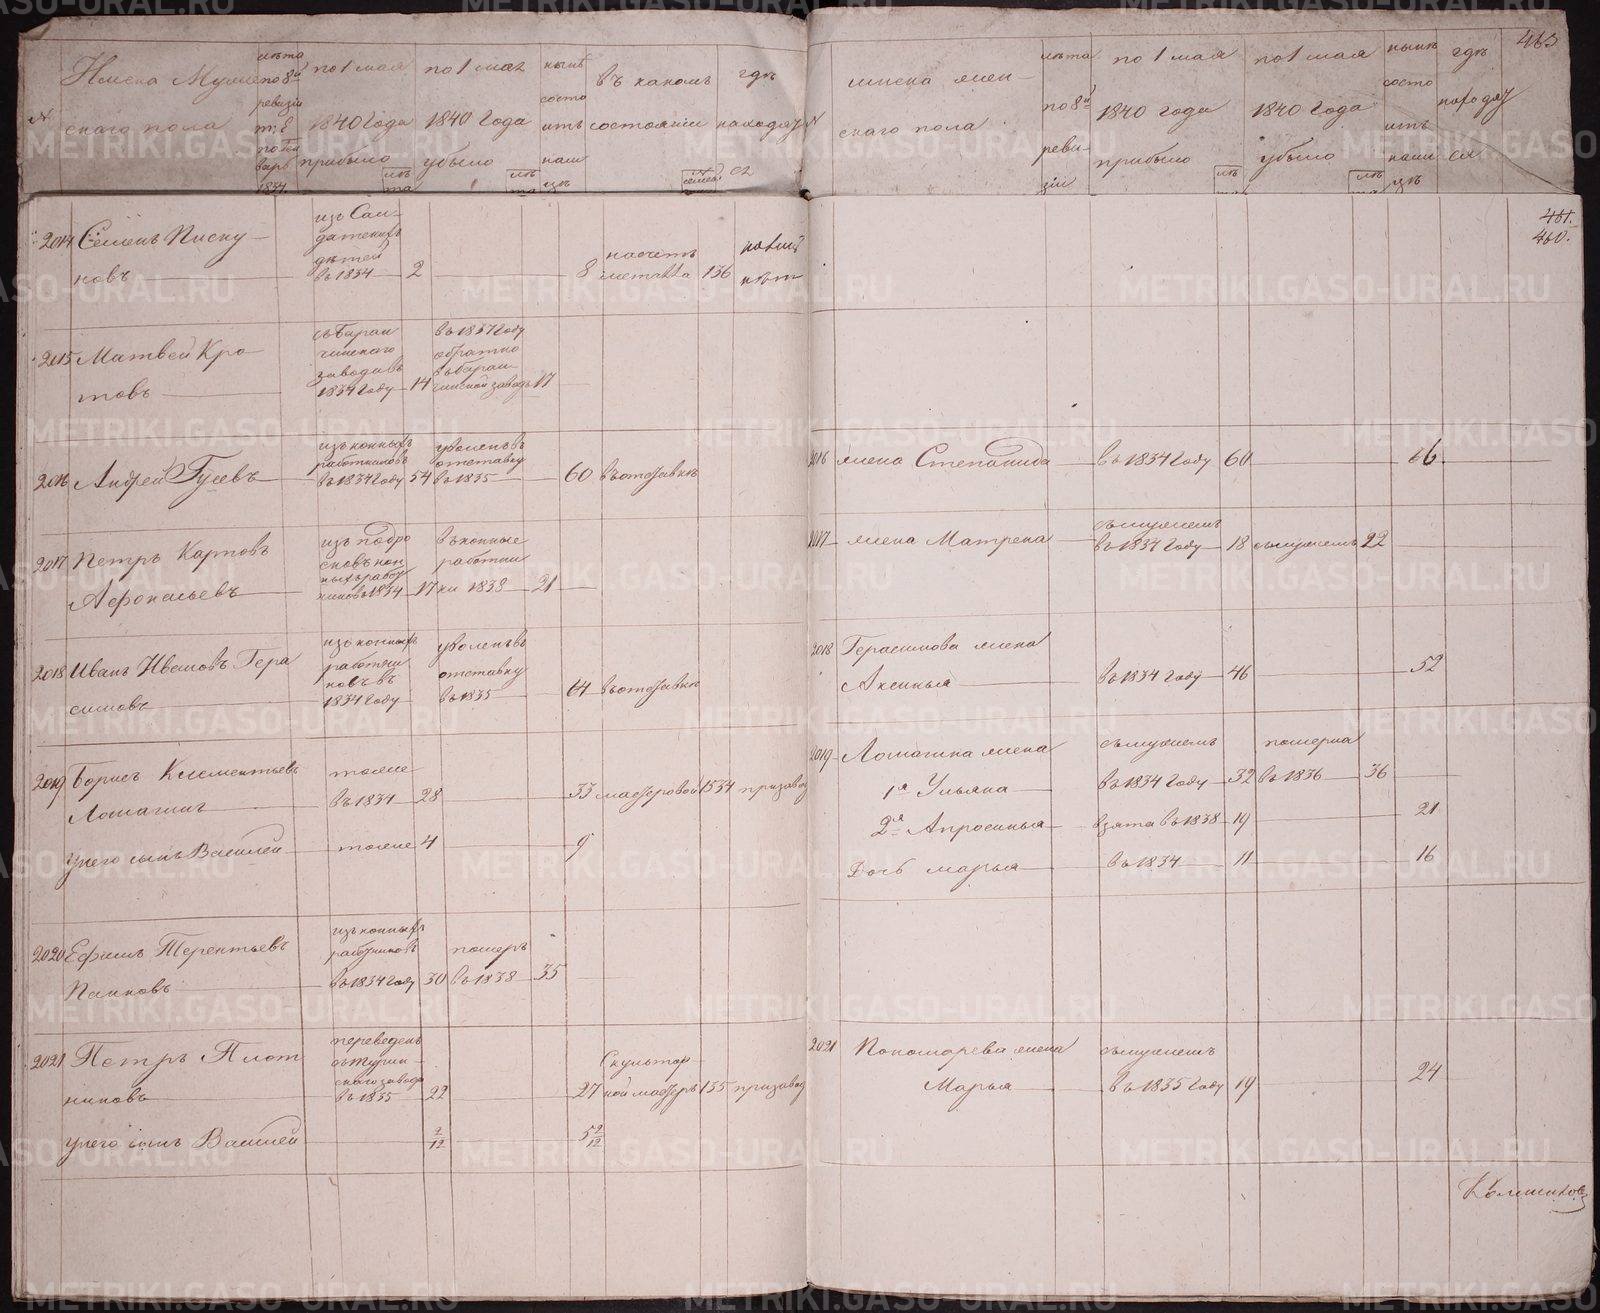 Имена Муже
скаго пола
лѣта
по 8й
ревизiи
по 1 мая
1840 года
прибыло
лѣ
та
по 1 мая
1840 года
убыло
лѣ
та
нынѣ
состо
итъ
нали
цѣ
въ какомъ
состоянiи
№
гдѣ
находят
ся
№
имена жен-
скаго пола
лѣта
по 8й
реви-
зiи
по 1 мая
1840 года
прибыло
лѣ
по 1 мая
1840 года
убыло
лѣ
нынѣ
состо
итъ
нали
цѣ
гдѣ
находят
ся
463
461.
460.
2014 Семенъ Писку-
новъ
изъ Сол-
датскихъ
дѣтей
въ 1834 2
8
136
2015 Матвей Кро
товъ
съ Баран
чинскаго
завода въ
1834 году 14
въ 1837 году
обратно
въ Баран-
чинской заводъ 17
2016 Андрей Гусевъ
изъ конныхъ
работниковъ
въ 1834 году 54
уволенъ въ
отставку
въ 1835
60 въ отставкѣ
2016 жена Степанида въ 1834 году 60 66
2017 Петръ Карповъ
Афонасьевъ
изъ подро
сковъ кон
ныхъ работ
никовъ 1834 17
въ конные
работни
ки 1838 21
2017 жена Матрена
съ мужемъ
въ 1834 году 18 съ мужемъ 22
2018 Иванъ Ивановъ Гера
симовъ
изъ конныхъ
работни
ковъ въ
1834 году
уволенъ въ
отставку
въ 1835
64 въ отставкѣ
2018 Герасимова жена
Аксинья въ 1834 году 46 52
2019 Борисъ Клементьевъ
Ломагинъ
тоже
въ 1834 28
33 мастеровой 1534 при завод
у него сынъ Василей тоже 4 9
2019 Ломагина жена
1я Ульяна
съ мужемъ
въ 1834 году 32
померла
въ 1836 36
2я Апросинья взята въ 1838 19 21
Дочь Марья въ 1834 11 16
2020 Ефимъ Терентьевъ
Панковъ
изъ конныхъ
работниковъ
въ 1834 году 30
померъ
въ 1838 35
2021 Петръ Плот
никовъ
переведенъ
съ Турин-
скаго завода
въ 1835 22
27
Скульптор-
ной мастеръ 155 при завод
у него сынъ Василей 2/12 5 2/12
2021 Пономарева жена
Марья
съ мужемъ
въ 1835 году 19 24
METRIKI.GASO-URAL.RU